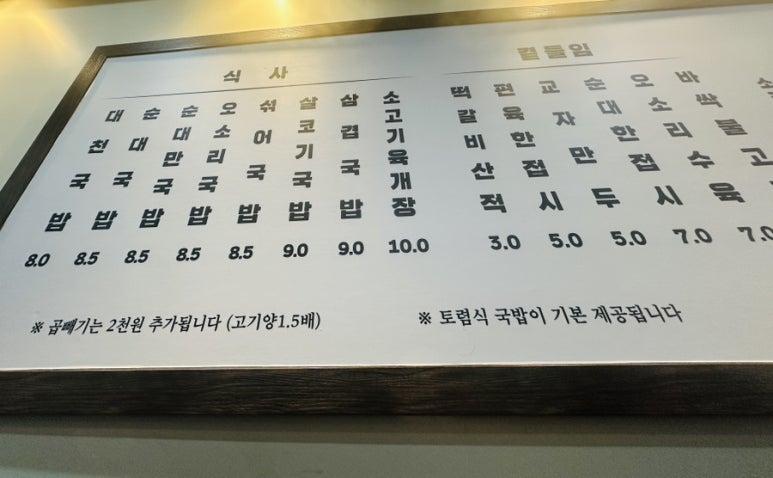 식사
대천국밥 8.0
순대국밥 8.5
순대만국밥 8.5
오소리국밥 8.5
섞어국밥 8.5
살코기국밥 9.0
삼겹국밥 9.0
소고기육개장 10.0
곁들임
떡갈비산적 3.0
편육한접시 5.0
교자만두 5.0
순대한접시 7.0
오소리수육 7.0
바싹불고
※ 곱빼기는 2천원 추가됩니다 (고기양1.5배)
※ 토렴식 국밥이 기본 제공됩니다